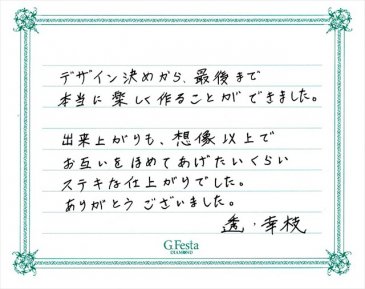 デザイン決めから、最後まで
本当に楽しく作ることができました。
出来上がりも、想像以上で
お互いをほめてあげたいくらい
ステキな仕上がりでした。
ありがとうございました。
透・幸枝
G.Festa
DIAMOND